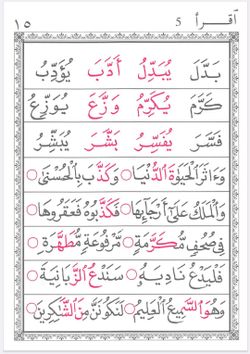 ١٥ 5 اقرأ
بَدَّلَ يُبَدِّلُ أَدَّبَ يُؤَدِّبُ
كَرَّمَ يُكَرِّمُ وَزَّعَ يُوَزِّعُ
فَسَّرَ يُفَسِّرُ بَشَّرَ يُبَشِّرُ
وَءَاثَرَ الْحَيَوٰةَ الدُّنْيَا وَكَذَّبَ بِالْحُسْنَىٰ
وَالْمَلَكُ عَلَىٰٓ أَرْجَآئِهَا فَكَذَّبُوهُ فَعَقَرُوهَا
فِى صُحُفٍ مُّكَرَّمَةٍ مَّرْفُوعَةٍ مُّطَهَّرَةٍ
فَلْيَدْعُ نَادِيَهُۥ سَنَدْعُ الزَّبَانِيَةَ
وَهُوَ السَّمِيعُ الْعَلِيمُ لَنَكُونَنَّ مِنَ الشَّٰكِرِينَ